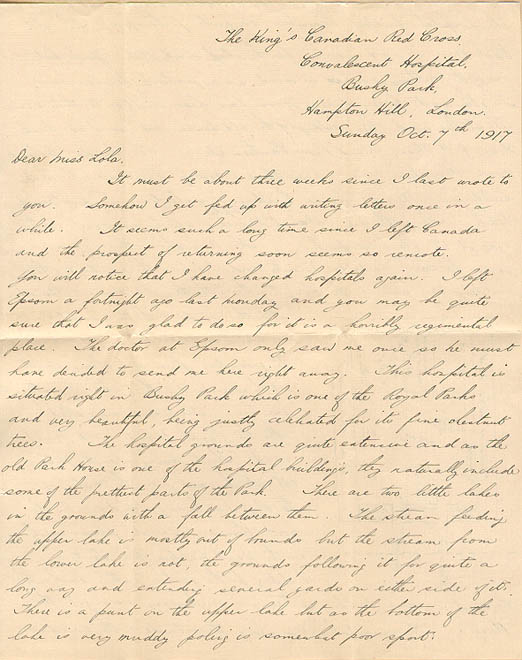 The King's Canadian Red Cross
Convalescent Hospital,
Bushy Park,
Hampton Hill, London.
Sunday Oct. 7th 1917
Dear Miss Lola.
It must be about three weeks since I last wrote to
you. Somehow I get fed up with writing letters once in a
while. It seems such a long time since I left Canada
and the prospect of returning soon seems so remote.
You will notice that I have changed hospitals again. I left
Epsom a fortnight ago last Monday and you may be quite
sure that I was glad to do so for it is a horribly regimental
place. The doctor at Epsom only saw me once so he must
have decided to send me here right away. This hospital is
situated right in Bushy Park which is one of the Royal Parks
and very beautiful, being justly celebrated for its fine chestnut
trees. The hospital grounds are quite extensive and as the
old Park House is one of the hospital buildings, they naturally include
some of the prettiest parts of the Park. There are two little lakes
in the grounds with a fall between them. The stream feeding
the upper lake is mostly out of bounds but the stream from
the lower lake is not, the grounds following it for quite a
long way and extending several yards on either side of it.
There is a punt on the upper lake but as the bottom of the
lake is very muddy poling is somewhat poor sport.